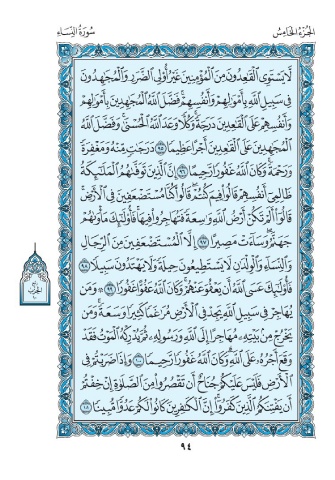 الجزء الخامس
سورة النساء
لَّا يَسْتَوِى ٱلْقَٰعِدُونَ مِنَ ٱلْمُؤْمِنِينَ غَيْرُ أُو۟لِى ٱلضَّرَرِ وَٱلْمُجَٰهِدُونَ
فِى سَبِيلِ ٱللَّهِ بِأَمْوَٰلِهِمْ وَأَنفُسِهِمْ فَضَّلَ ٱللَّهُ ٱلْمُجَٰهِدِينَ بِأَمْوَٰلِهِمْ
وَأَنفُسِهِمْ عَلَى ٱلْقَٰعِدِينَ دَرَجَةً وَكُلًّا وَعَدَ ٱللَّهُ ٱلْحُسْنَىٰ وَفَضَّلَ ٱللَّهُ
ٱلْمُجَٰهِدِينَ عَلَى ٱلْقَٰعِدِينَ أَجْرًا عَظِيمًا ٩٥ دَرَجَٰتٍ مِّنْهُ وَمَغْفِرَةً
وَرَحْمَةً وَكَانَ ٱللَّهُ غَفُورًا رَّحِيمًا ٩٦ إِنَّ ٱلَّذِينَ تَوَفَّىٰهُمُ ٱلْمَلَٰٓئِكَةُ
ظَالِمِىٓ أَنفُسِهِمْ قَالُوا۟ فِيمَ كُنتُمْ قَالُوا۟ كُنَّا مُسْتَضْعَفِينَ فِى ٱلْأَرْضِ
قَالُوٓا۟ أَلَمْ تَكُنْ أَرْضُ ٱللَّهِ وَٰسِعَةً فَتُهَاجِرُوا۟ فِيهَا فَأُو۟لَٰٓئِكَ مَأْوَىٰهُمْ
جَهَنَّمُ وَسَآءَتْ مَصِيرًا ٩٧ إِلَّا ٱلْمُسْتَضْعَفِينَ مِنَ ٱلرِّجَالِ
وَٱلنِّسَآءِ وَٱلْوِلْدَٰنِ لَا يَسْتَطِيعُونَ حِيلَةً وَلَا يَهْتَدُونَ سَبِيلًا ٩٨
فَأُو۟لَٰٓئِكَ عَسَى ٱللَّهُ أَن يَعْفُوَ عَنْهُمْ وَكَانَ ٱللَّهُ عَفُوًّا غَفُورًا ٩٩ وَمَن
يُهَاجِرْ فِى سَبِيلِ ٱللَّهِ يَجِدْ فِى ٱلْأَرْضِ مُرَٰغَمًا كَثِيرًا وَسَعَةً وَمَن
يَخْرُجْ مِنۢ بَيْتِهِۦ مُهَاجِرًا إِلَى ٱللَّهِ وَرَسُولِهِۦ ثُمَّ يُدْرِكْهُ ٱلْمَوْتُ فَقَدْ
وَقَعَ أَجْرُهُۥ عَلَى ٱللَّهِ وَكَانَ ٱللَّهُ غَفُورًا رَّحِيمًا ١٠٠ وَإِذَا ضَرَبْتُمْ فِى
ٱلْأَرْضِ فَلَيْسَ عَلَيْكُمْ جُنَاحٌ أَن تَقْصُرُوا۟ مِنَ ٱلصَّلَوٰةِ إِنْ خِفْتُمْ
أَن يَفْتِنَكُمُ ٱلَّذِينَ كَفَرُوٓا۟ إِنَّ ٱلْكَٰفِرِينَ كَانُوا۟ لَكُمْ عَدُوًّا مُّبِينًا ١٠١
٩٤